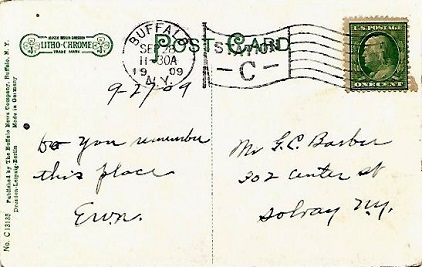 LITHO-CHROME
TRADE MARK
POST CARD
BUFFALO
SEP 28
11-30A
1909
N.Y.
STATION
C
U.S. POSTAGE
ONE CENT
9-27 09
Do you remember
this place
Mr G.C. Barber
302 Center st
Solvay N.Y.
No. C13185 Published by The Buffalo News Company, Buffalo, N.Y.
Dresden-Leipzig-Berlin Made in Germany